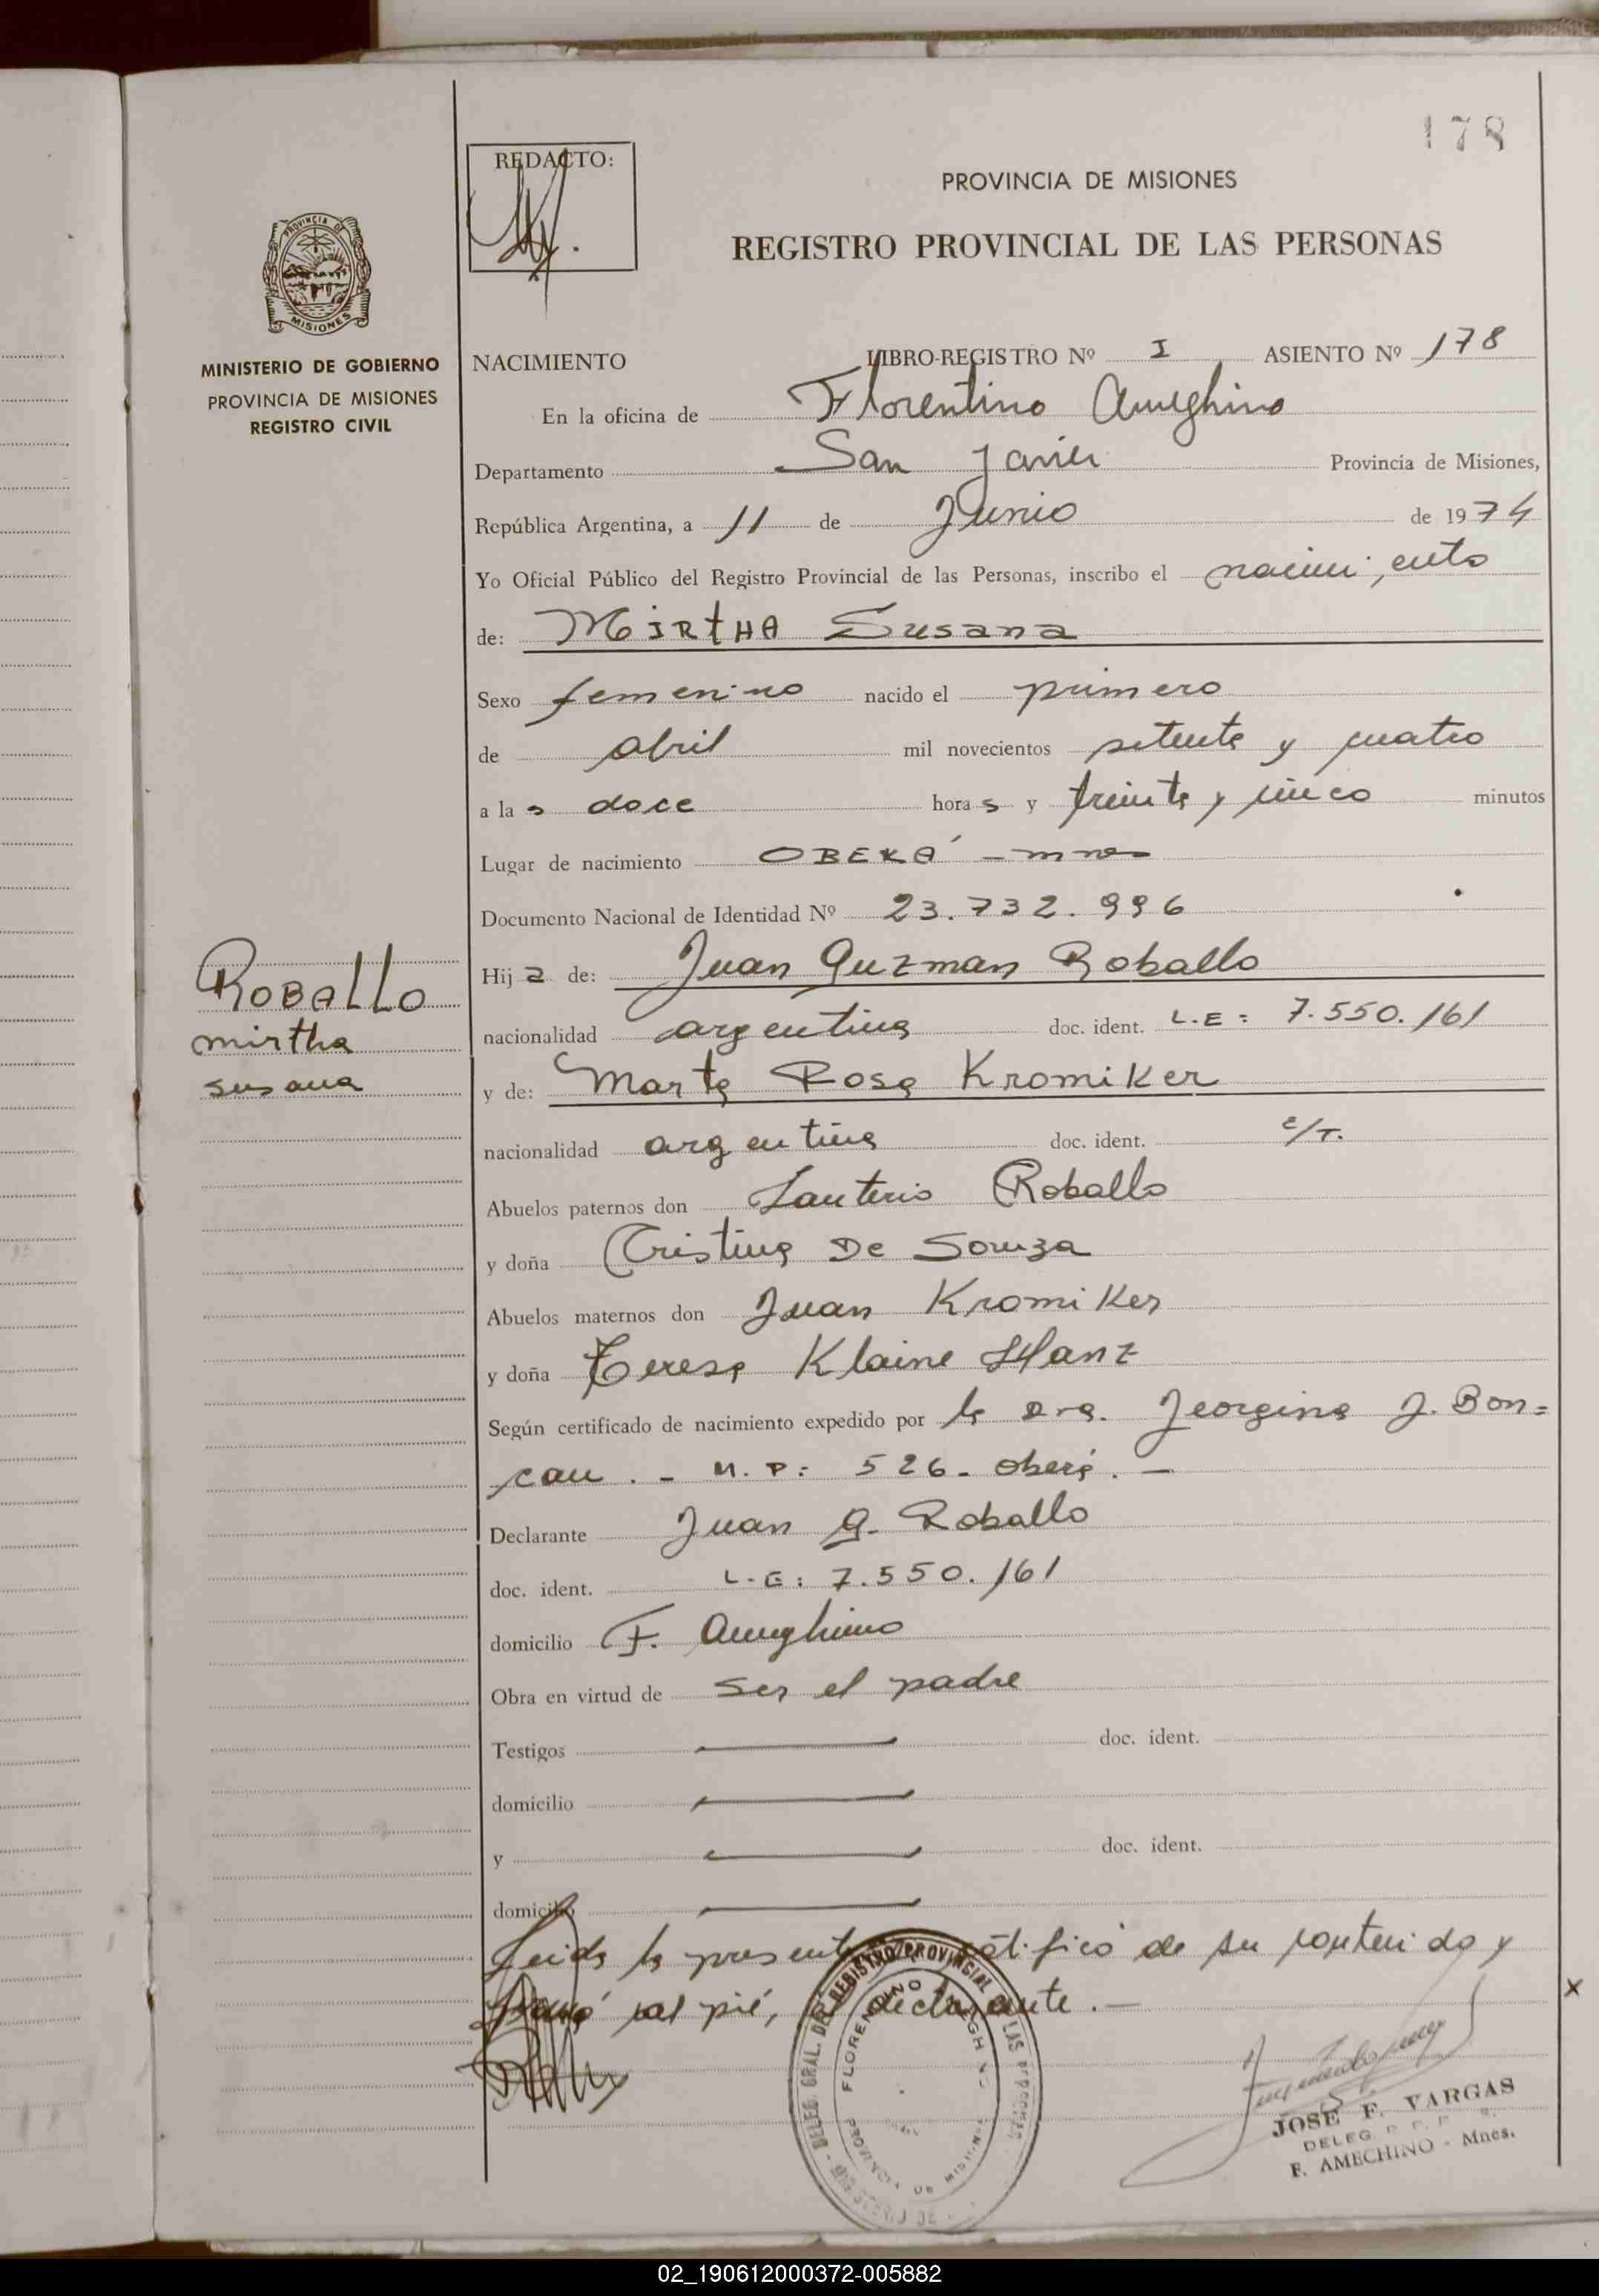 178
REDACTO:
PROVINCIA DE MISIONES
REGISTRO PROVINCIAL DE LAS PERSONAS
PROVINCIA DE
MISIONES
MINISTERIO DE GOBIERNO
PROVINCIA DE MISIONES
REGISTRO CIVIL
NACIMIENTO LIBRO-REGISTRO Nº I ASIENTO Nº 178
En la oficina de Florentino Ameghino
Departamento San Javier Provincia de Misiones,
República Argentina, a 11 de Junio de 1974
Yo Oficial Público del Registro Provincial de las Personas, inscribo el nacimiento
de: MIRtHA Susana
Sexo femenino nacido el primero
de abril mil novecientos setenta y cuatro
a las doce horas y treinta y cinco minutos
Lugar de nacimiento OBERÁ - mnes
Documento Nacional de Identidad Nº 23.732.996
Hija de: Juan Guzman Roballo
nacionalidad argentina doc. ident. L.E: 7.550.161
y de: Marta Rosa Kromiker
nacionalidad argentina doc. ident. E/T.
Abuelos paternos don Lauterio Roballo
y doña Cristina De Souza
Abuelos maternos don Juan Kromiker
y doña Teresa Klaine
Según certificado de nacimiento expedido por la Dra. Jeorgina J. Bon=
cau. - M.P: 526- Oberá. -
Declarante Juan G. Roballo
doc. ident. L.E: 7.550.161
domicilio F. Ameghino
Obra en virtud de ser el padre
Testigos doc. ident.
domicilio
y doc. ident.
domicilio
Leida la presente ratificó de su contenido y
firmó al pié, el declarante. -
ROBALLO
mirtha
susana
DELEG. GRAL. DEL REGISTRO PROVINCIAL DE LAS PERSONAS
FLORENTINO AMEGHINO
PROVINCIA DE MISIONES
x
JOSE F. VARGAS
DELEG.
F. AMECHINO - Mnes.
02_190612000372-005882